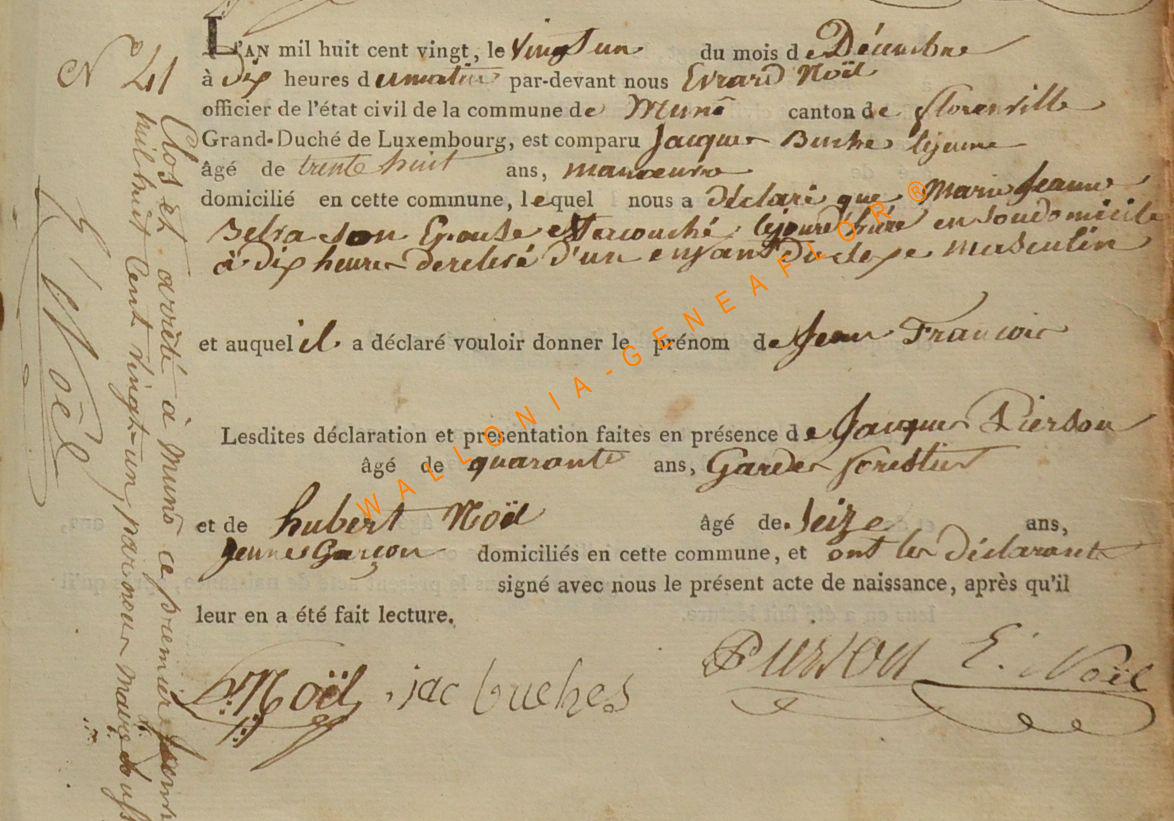 N° 41
L'AN mil huit cent vingt, le vingt un du mois de Décembre
à dix heures du matin par-devant nous Evrard Noël
officier de l'état civil de la commune de Muno canton de florenville
Grand-Duché de Luxembourg, est comparu Jacques Buche lejeune
âgé de trente huit ans, manoeuvre
domicilié en cette commune, lequel nous a déclaré que Marie Jeanne
son Epouse est acouché en son domicile
à dix heures d'un enfant du sexe masculin
et auquel il a déclaré vouloir donner le prénom de Jean Francois
Lesdites déclaration et présentation faites en présence de Jacques Pierson
âgé de quarante ans, Garde forestier
et de hubert Noël âgé de Seize ans,
jeune Garçon domiciliés en cette commune, et ont les déclarant
signé avec nous le présent acte de naissance, après qu'il
leur en a été fait lecture.
h: Noël jac buches Pierson E. Noël
Clos et arrêté à Muno ce premier
mil huit Cent vingt-un par nous maire
E. Noël
WALLONIA-GENEAFLOR®